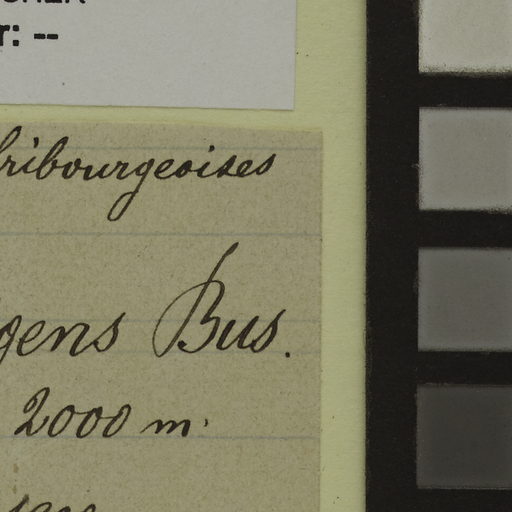 r: --
fribourgeoises
gens Bus.
2000 m.